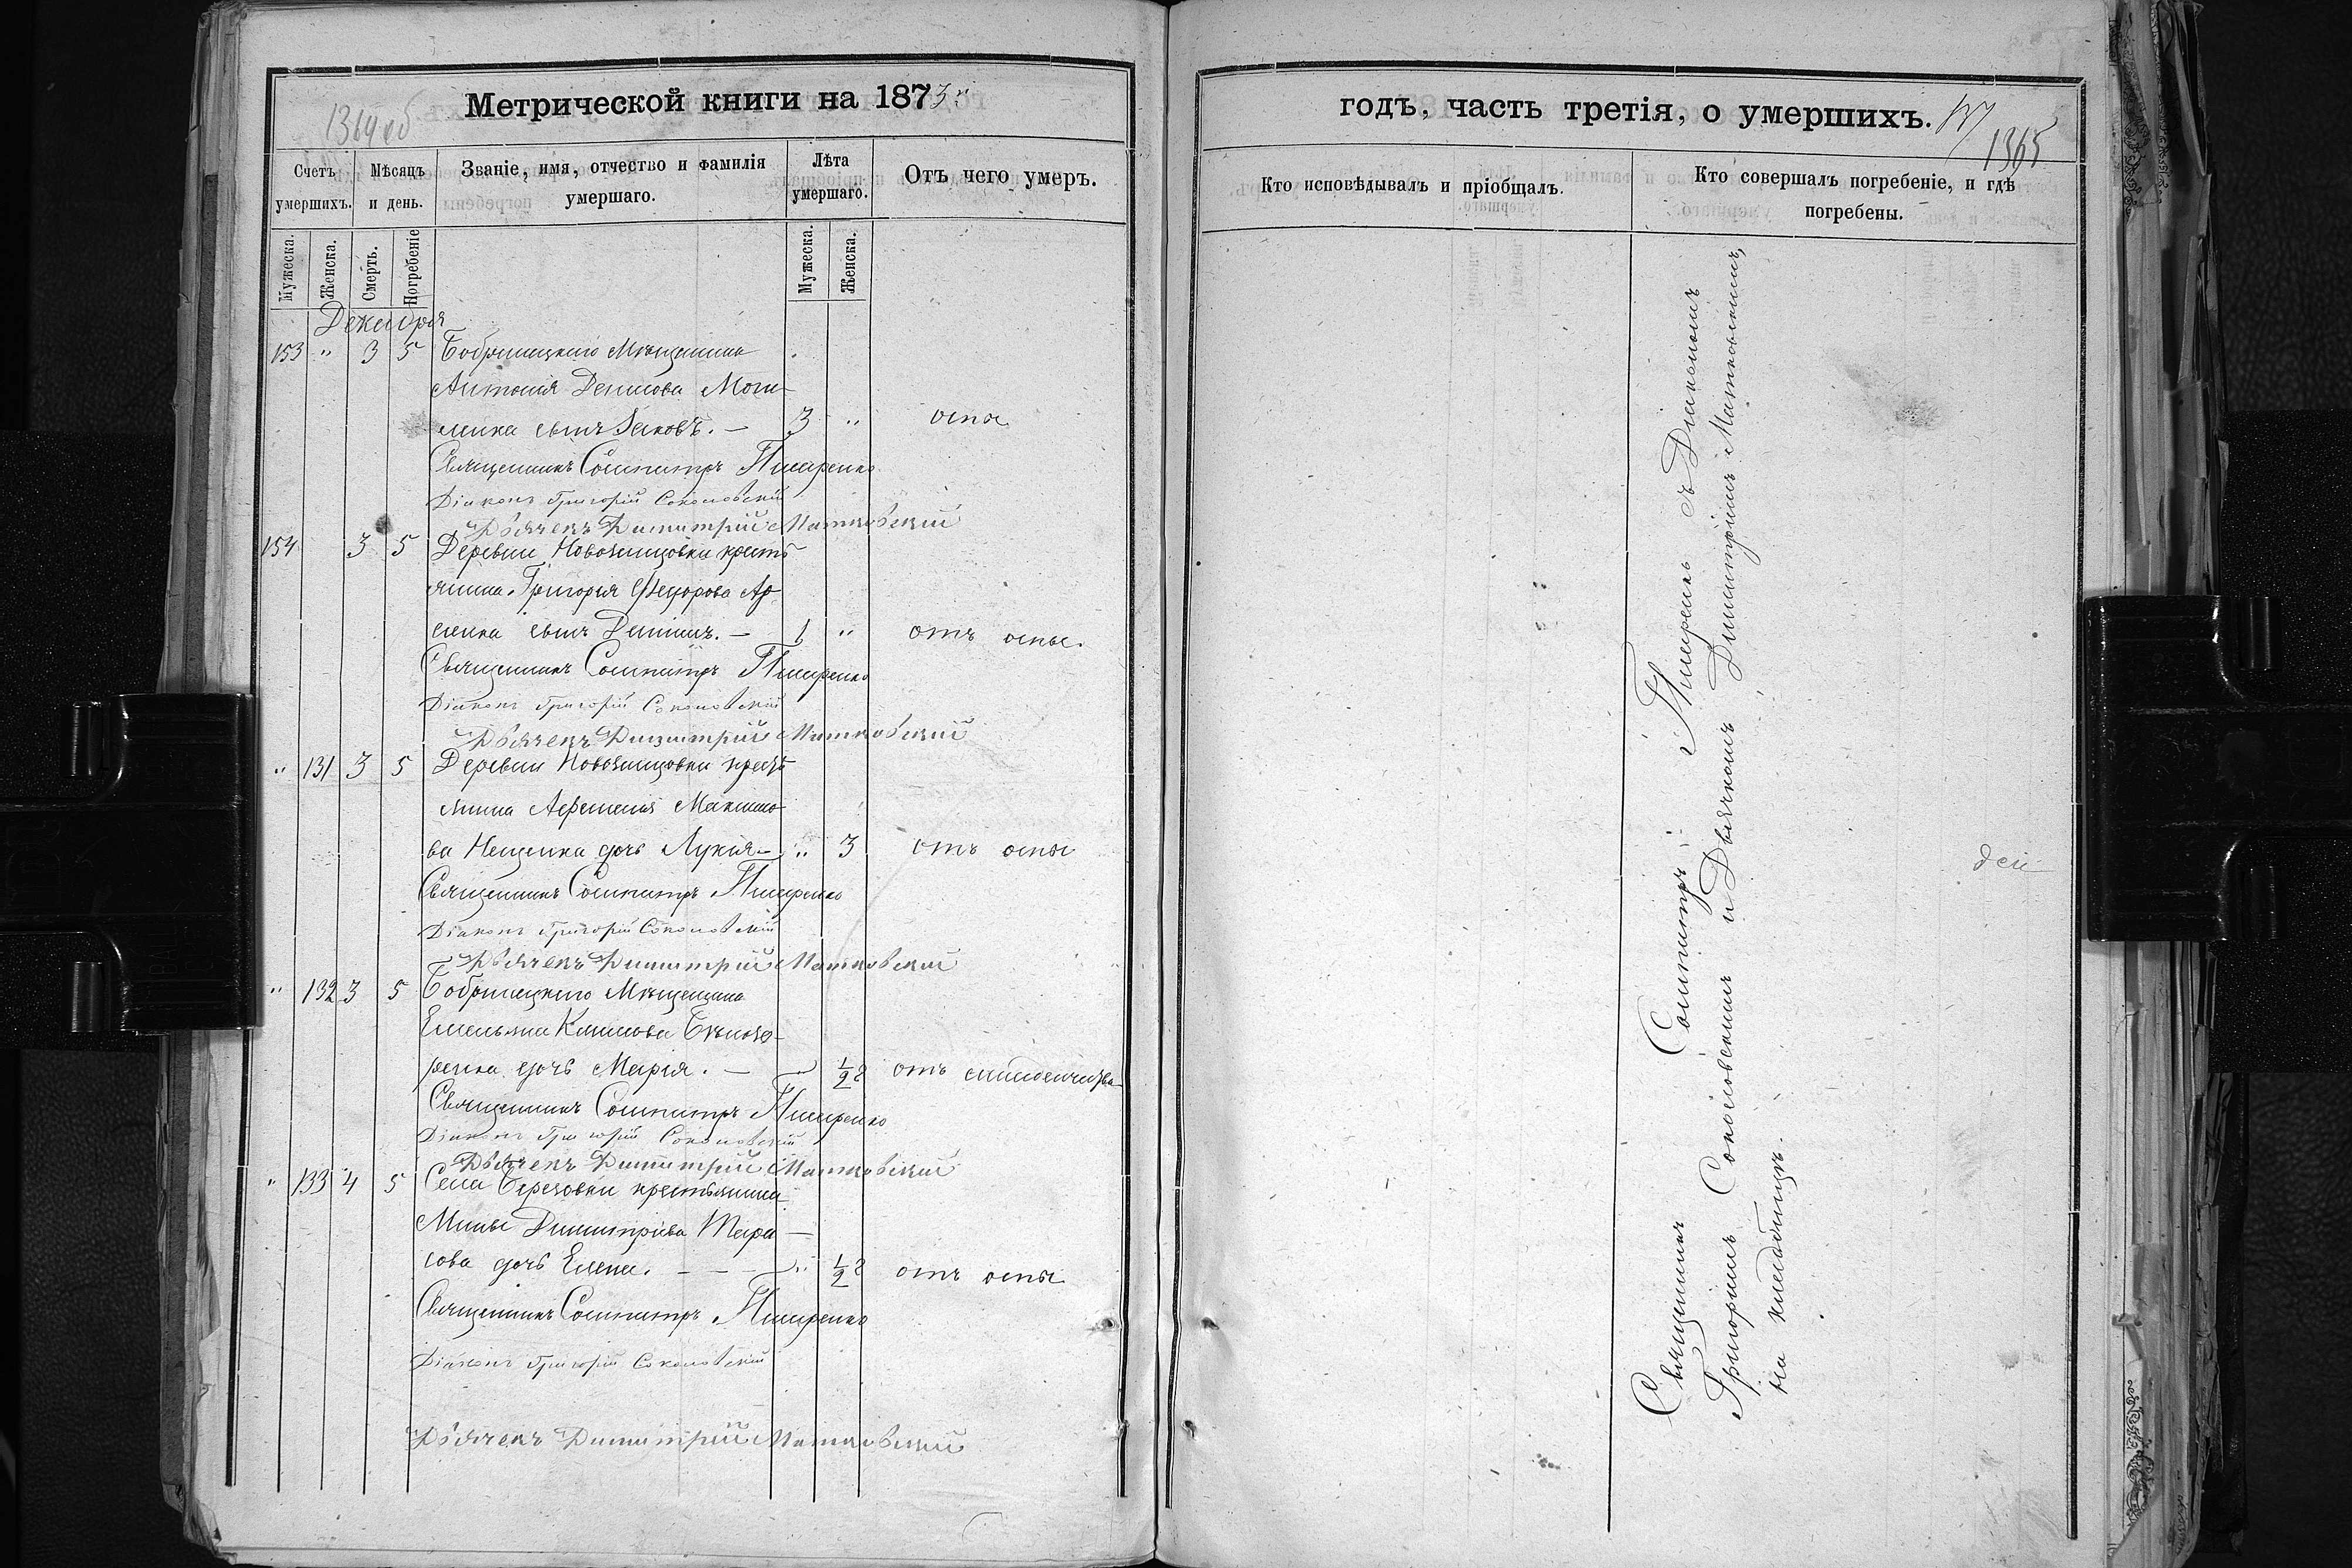 Метрической книги на 1873
1364 об
Счетъ умершихъ.
Мѣсяцъ и день.
Званіе, имя, отчество и фамилія умершаго.
Лѣта умершаго.
Отъ чего умеръ.
Мужеска.
Женска.
Смерть.
Погребеніе
Мужеска.
Женска.
Декабря
153 " 3 5 Бобринецкого Мѣщанина
Антонія Денисова Моги-
лика сынъ Яковъ. — 3 " оспы
Священникъ Сосипатръ Писаренко
Діаконъ Григорій Соколовскій
Дьячекъ Димитрій Матковскій
154 3 5 Деревни крестъ-
янина Григорія Федорова
сынъ — 1 " отъ оспы.
Священникъ Сосипатръ Писаренко
Діаконъ Григорій Соколовскій
Дьячекъ Димитрій Матковскій
" 131 3 5 Деревни крестъ-
янина Максимо-
ва дочь Лукія — " 3 отъ оспы
Священникъ Сосипатръ Писаренко
Діаконъ Григорій Соколовскій
Дьячекъ Димитрій Матковскій
" 132 3 5 Бобринецкого Мѣщанина
Емельяна Климова
дочь Марія. — 1/2 отъ
Священникъ Сосипатръ Писаренко
Діаконъ Григорій Соколовскій
Дьячекъ Димитрій Матковскій
" 133 4 5 Села Березовки крестьянина
Мины Димитріева Тара-
сова дочь Елена. — " 1/2 отъ оспы
Священникъ Сосипатръ Писаренко
Діаконъ Григорій Соколовскій
Дьячекъ Димитрій Матковскій
годъ, часть третія, о умершихъ.
1365
Кто исповѣдывалъ и пріобщалъ.
Кто совершалъ погребеніе, и гдѣ погребены.
Священникъ Сосипатръ Писаренко съ Діакономъ
Григоріемъ Соколовскимъ и Дьячкомъ Димитріемъ Матковскимъ,
на кладбищѣ.